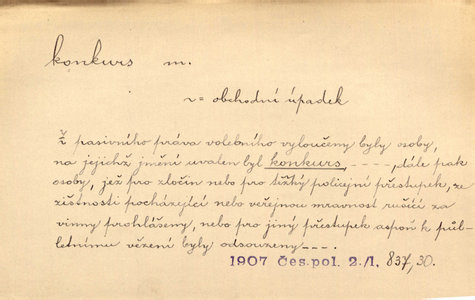 konkurs m.
~ = obchodní úpadek
Ž pasivního práva volebního vyloučeny byly osoby,
na jejichž jmění uvalen byl konkurs, - - - -, dále pak
osoby, jež pro zločin nebo pro těžký policejní přestupek, ze
zištnosti pocházející nebo veřejnou mravnost rušící za
vinny prohlášeny, nebo pro jiný přestupek aspoň k půl-
letnímu vězení byly odsouzeny - - -.
1907 Čes. pol. 2./1, 837,30.